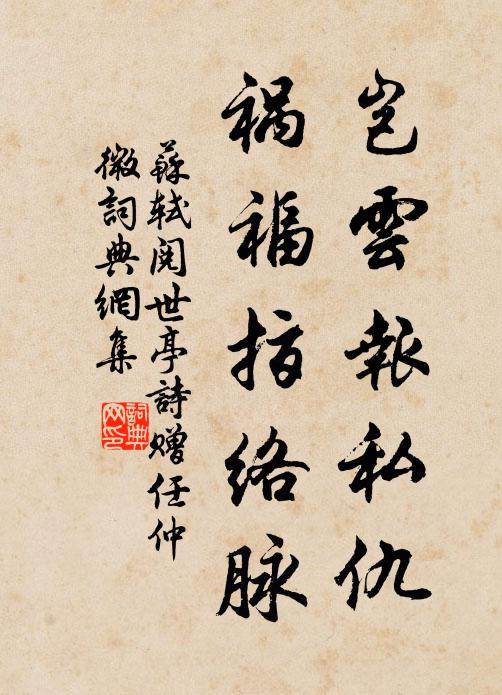 岂雲報私仇
禍福指络脉
蘇軾閱世亭詩赠任仲
微詞典網集
詞典网印